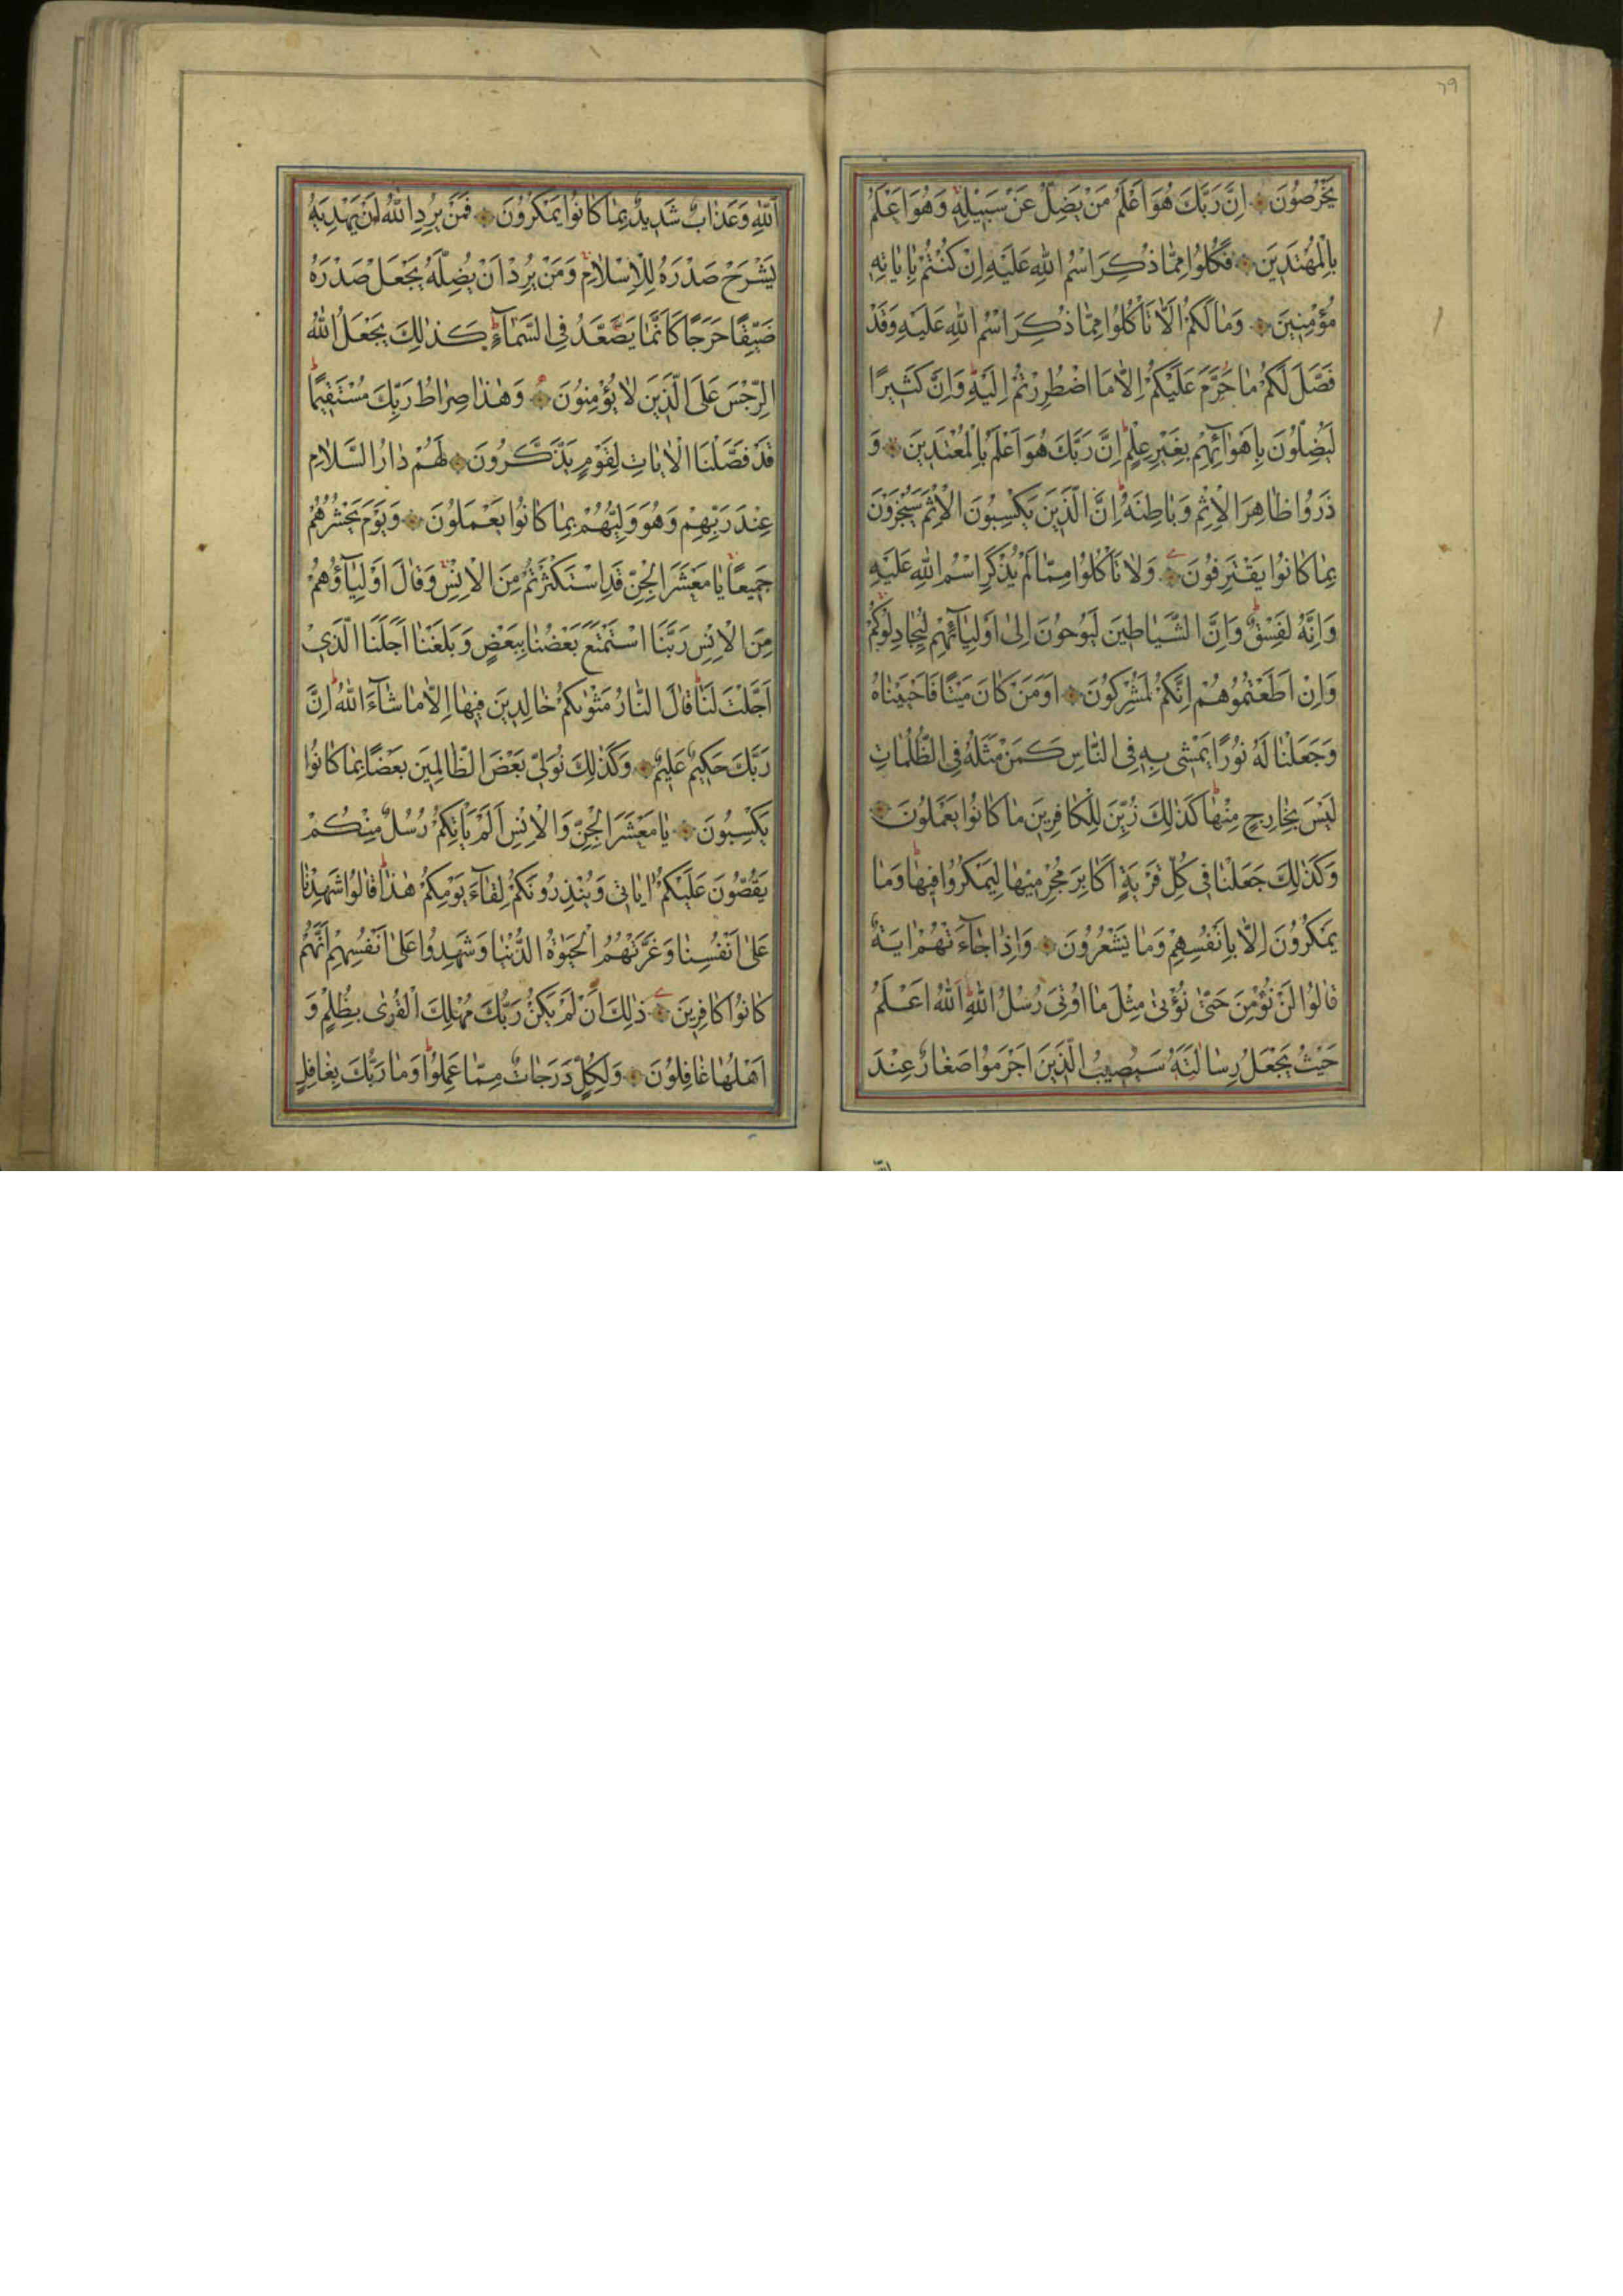 ٦٩
يَخْرُصُونَ ۞ اِنَّ رَبَّكَ هُوَ اَعْلَمُ مَنْ يَضِلُّ عَنْ سَبِيلِهِ وَهُوَ اَعْلَمُ
بِالْمُهْتَدِينَ ۞ فَكُلُوا مِمَّا ذُكِرَ اسْمُ اللّٰهِ عَلَيْهِ اِنْ كُنْتُمْ بِاٰيَاتِهِ
مُؤْمِنِينَ ۞ وَمَا لَكُمْ اَلَّا تَأْكُلُوا مِمَّا ذُكِرَ اسْمُ اللّٰهِ عَلَيْهِ وَقَدْ
فَصَّلَ لَكُمْ مَا حَرَّمَ عَلَيْكُمْ اِلَّا مَا اضْطُرِرْتُمْ اِلَيْهِ وَاِنَّ كَثِيرًا
لَيُضِلُّونَ بِاَهْوَائِهِمْ بِغَيْرِ عِلْمٍ اِنَّ رَبَّكَ هُوَ اَعْلَمُ بِالْمُعْتَدِينَ ۞ وَ
ذَرُوا ظَاهِرَ الْاِثْمِ وَبَاطِنَهُ اِنَّ الَّذِينَ يَكْسِبُونَ الْاِثْمَ سَيُجْزَوْنَ
بِمَا كَانُوا يَقْتَرِفُونَ ۞ وَلَا تَأْكُلُوا مِمَّا لَمْ يُذْكَرِ اسْمُ اللّٰهِ عَلَيْهِ
وَاِنَّهُ لَفِسْقٌ وَاِنَّ الشَّيَاطِينَ لَيُوحُونَ اِلٰى اَوْلِيَآئِهِمْ لِيُجَادِلُوكُمْ
وَاِنْ اَطَعْتُمُوهُمْ اِنَّكُمْ لَمُشْرِكُونَ ۞ اَوَمَنْ كَانَ مَيْتًا فَاَحْيَيْنَاهُ
وَجَعَلْنَا لَهُ نُورًا يَمْشِي بِهِ فِي النَّاسِ كَمَنْ مَثَلُهُ فِي الظُّلُمَاتِ
لَيْسَ بِخَارِجٍ مِنْهَا كَذٰلِكَ زُيِّنَ لِلْكَافِرِينَ مَا كَانُوا يَعْمَلُونَ ۞
وَكَذٰلِكَ جَعَلْنَا فِي كُلِّ قَرْيَةٍ اَكَابِرَ مُجْرِمِيهَا لِيَمْكُرُوا فِيهَا وَمَا
يَمْكُرُونَ اِلَّا بِاَنْفُسِهِمْ وَمَا يَشْعُرُونَ ۞ وَاِذَا جَآءَتْهُمْ اٰيَةٌ
قَالُوا لَنْ نُؤْمِنَ حَتّٰى نُؤْتٰى مِثْلَ مَا اُوتِيَ رُسُلُ اللّٰهِ اَللّٰهُ اَعْلَمُ
حَيْثُ يَجْعَلُ رِسَالَتَهُ سَيُصِيبُ الَّذِينَ اَجْرَمُوا صَغَارٌ عِنْدَ
اللّٰهِ وَعَذَابٌ شَدِيدٌ بِمَا كَانُوا يَمْكُرُونَ ۞ فَمَنْ يُرِدِ اللّٰهُ اَنْ يَهْدِيَهُ
يَشْرَحْ صَدْرَهُ لِلْاِسْلَامِ وَمَنْ يُرِدْ اَنْ يُضِلَّهُ يَجْعَلْ صَدْرَهُ
ضَيِّقًا حَرَجًا كَاَنَّمَا يَصَّعَّدُ فِي السَّمَآءِ كَذٰلِكَ يَجْعَلُ اللّٰهُ
الرِّجْسَ عَلَى الَّذِينَ لَا يُؤْمِنُونَ ۞ وَهٰذَا صِرَاطُ رَبِّكَ مُسْتَقِيمًا
قَدْ فَصَّلْنَا الْاٰيَاتِ لِقَوْمٍ يَذَّكَّرُونَ ۞ لَهُمْ دَارُ السَّلَامِ
عِنْدَ رَبِّهِمْ وَهُوَ وَلِيُّهُمْ بِمَا كَانُوا يَعْمَلُونَ ۞ وَيَوْمَ يَحْشُرُهُمْ
جَمِيعًا يَا مَعْشَرَ الْجِنِّ قَدِ اسْتَكْثَرْتُمْ مِنَ الْاِنْسِ وَقَالَ اَوْلِيَآؤُهُمْ
مِنَ الْاِنْسِ رَبَّنَا اسْتَمْتَعَ بَعْضُنَا بِبَعْضٍ وَبَلَغْنَا اَجَلَنَا الَّذِي
اَجَّلْتَ لَنَا قَالَ النَّارُ مَثْوٰيكُمْ خَالِدِينَ فِيهَا اِلَّا مَا شَآءَ اللّٰهُ اِنَّ
رَبَّكَ حَكِيمٌ عَلِيمٌ ۞ وَكَذٰلِكَ نُوَلِّي بَعْضَ الظَّالِمِينَ بَعْضًا بِمَا كَانُوا
يَكْسِبُونَ ۞ يَا مَعْشَرَ الْجِنِّ وَالْاِنْسِ اَلَمْ يَأْتِكُمْ رُسُلٌ مِنْكُمْ
يَقُصُّونَ عَلَيْكُمْ اٰيَاتِي وَيُنْذِرُونَكُمْ لِقَآءَ يَوْمِكُمْ هٰذَا قَالُوا شَهِدْنَا
عَلٰى اَنْفُسِنَا وَغَرَّتْهُمُ الْحَيٰوةُ الدُّنْيَا وَشَهِدُوا عَلٰى اَنْفُسِهِمْ اَنَّهُمْ
كَانُوا كَافِرِينَ ۞ ذٰلِكَ اَنْ لَمْ يَكُنْ رَبُّكَ مُهْلِكَ الْقُرٰى بِظُلْمٍ وَ
اَهْلُهَا غَافِلُونَ ۞ وَلِكُلٍّ دَرَجَاتٌ مِمَّا عَمِلُوا وَمَا رَبُّكَ بِغَافِلٍ